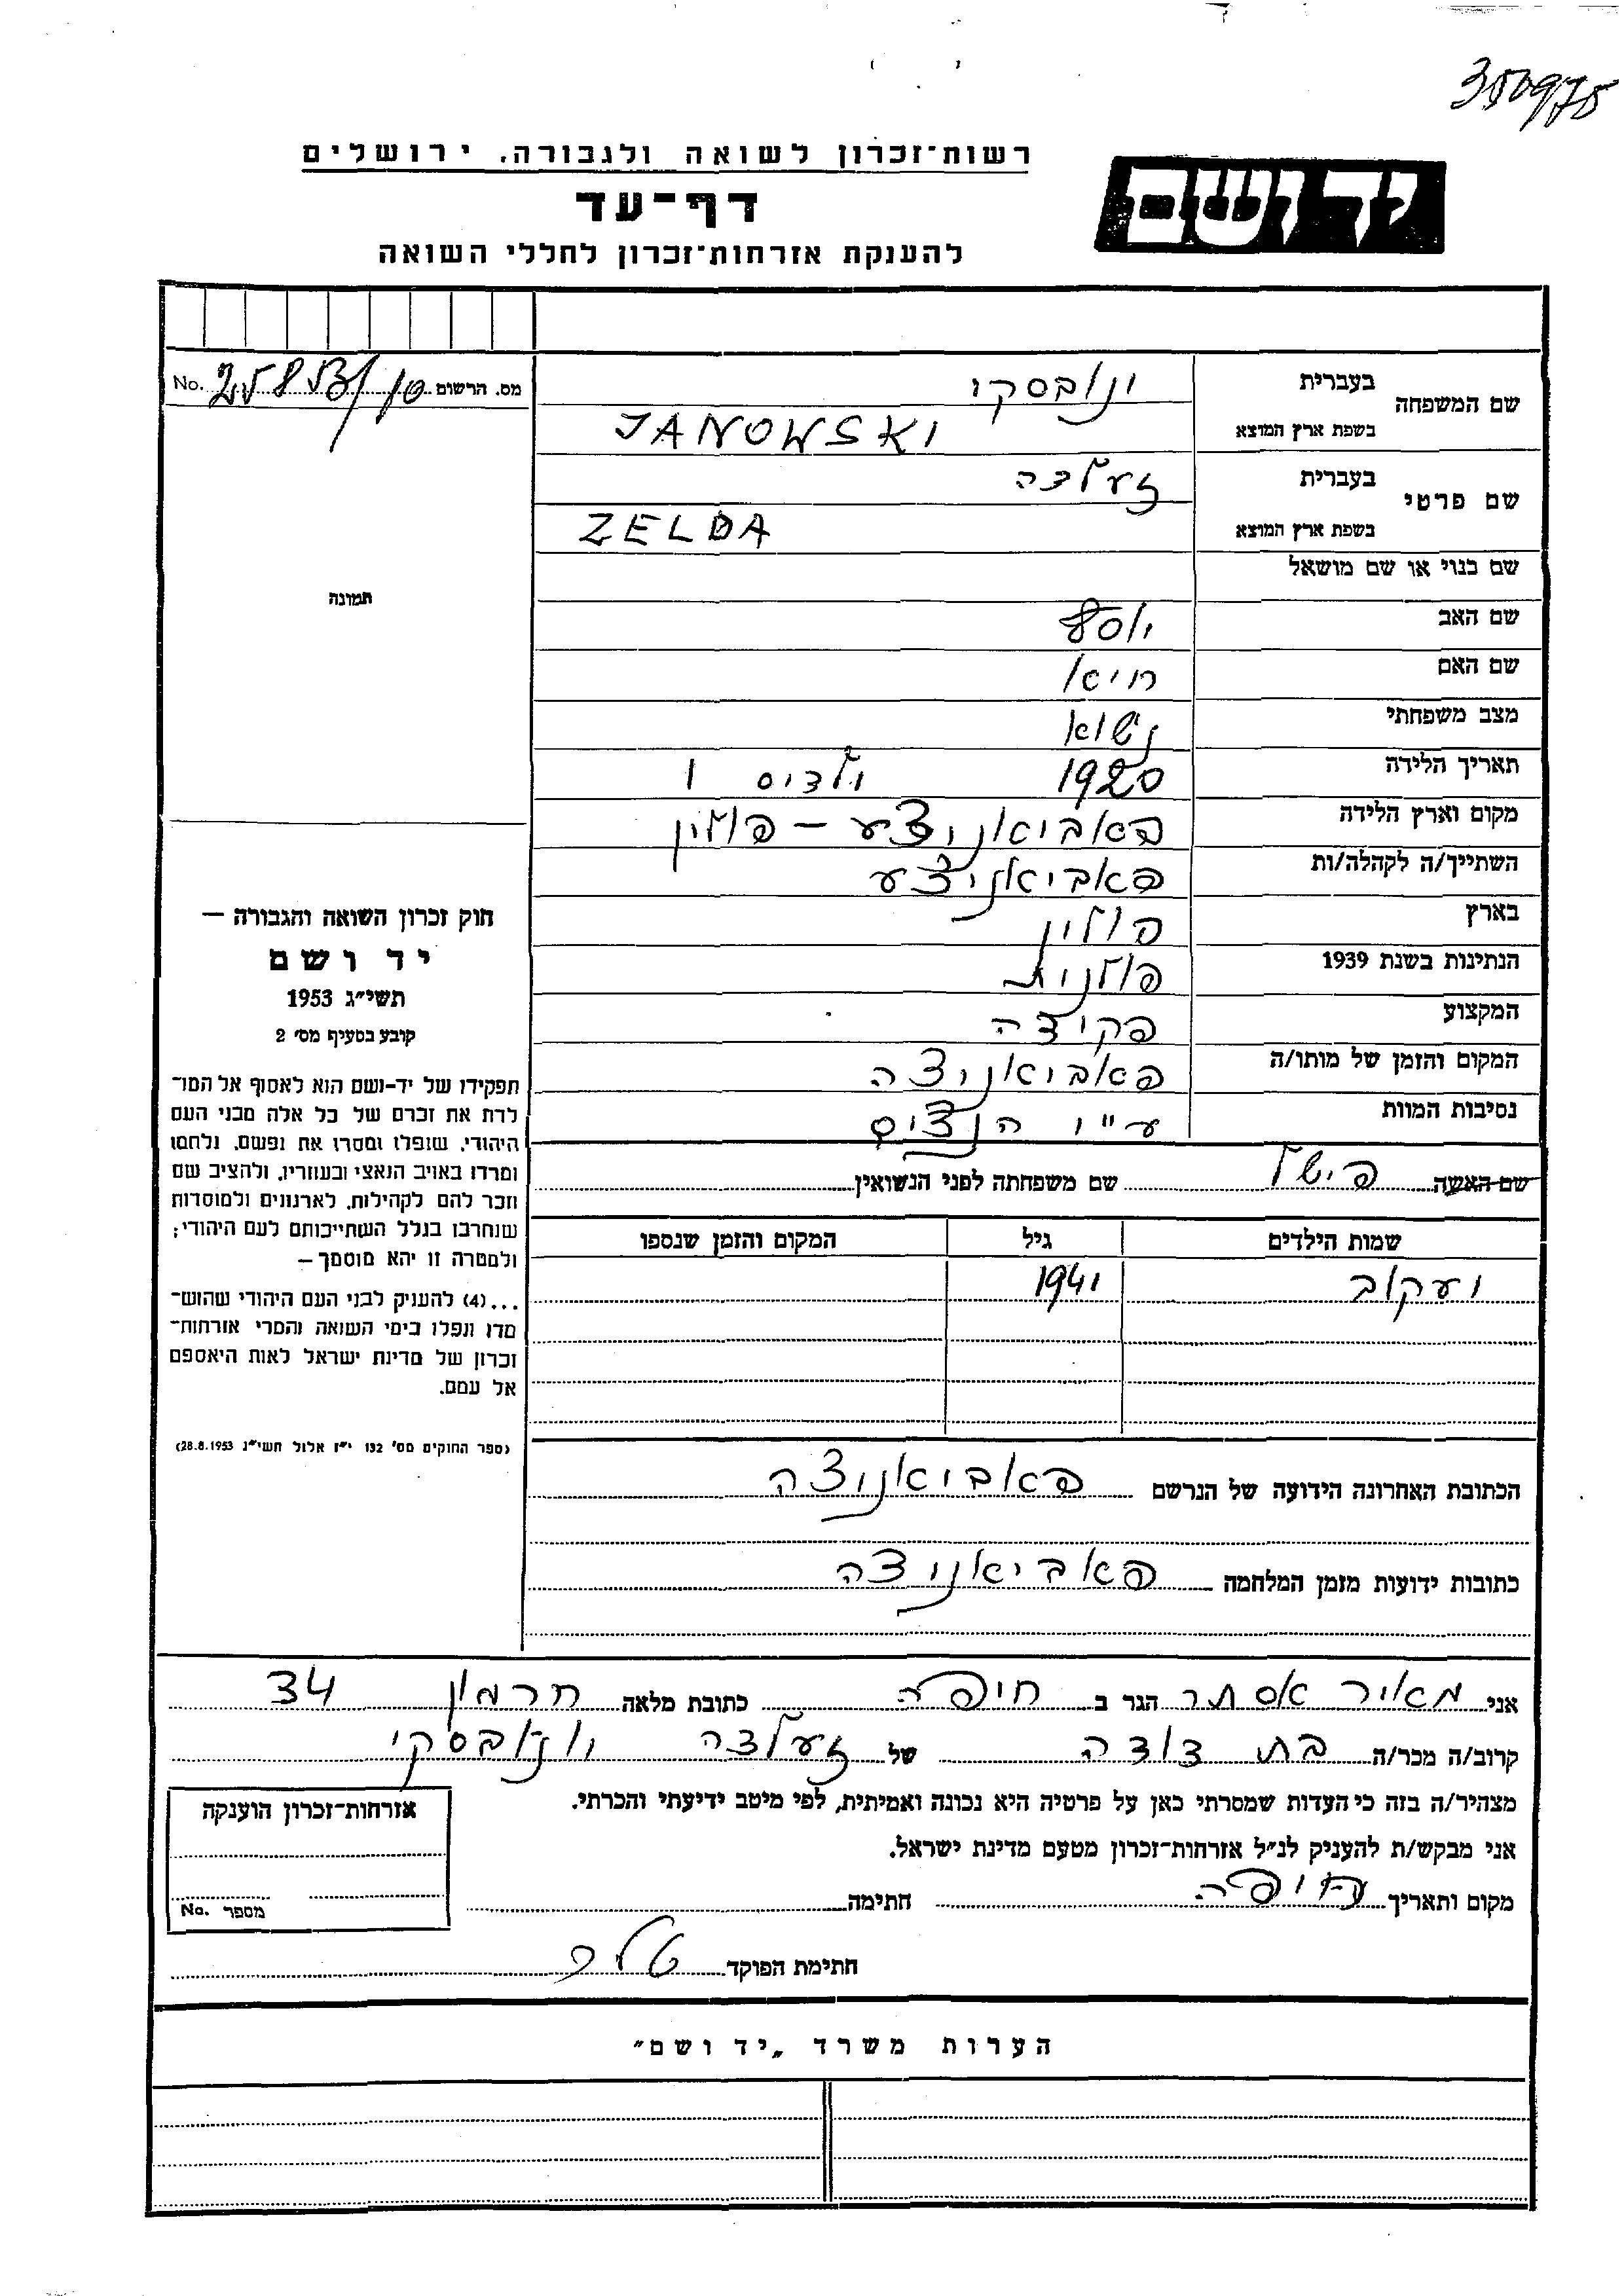 350975
רשות־זכרון לשואה ולגבורה, ירושלים
יד ושם
דף־עד
להענקת אזרחות־זכרון לחללי השואה
מס. הרשום 25853/10 No.
שם המשפחה
בעברית ינובסקי
בשפת ארץ המוצא JANOWSKI
שם פרטי
בעברית זעלדה
בשפת ארץ המוצא ZELDA
שם כנוי או שם מושאל
שם האב יוסף
שם האם חייא
מצב משפחתי נשוא
תאריך הלידה 1920 ילדים 1
מקום וארץ הלידה פאביאניצע – פולין
השתייך/ה לקהלה/ות פאביאניצע
בארץ פולין
הנתינות בשנת 1939 פולנית
המקצוע פקידה
המקום והזמן של מותו/ה פאביאניצה
נסיבות המוות ע״י הנצים
שם האשה פישל שם משפחתה לפני הנשואין
שמות הילדים גיל המקום והזמן שנספו
יעקוב 1941
הכתובת האחרונה הידועה של הנרשם פאביאניצה
כתובות ידועות מזמן המלחמה פאביאניצה
תמונה
חוק זכרון השואה והגבורה —
יד ושם
תשי״ג 1953
קובע בסעיף מס׳ 2
תפקידו של יד-ושם הוא לאסוף אל המו־
לדת את זכרם של כל אלה מבני העם
היהודי, שנפלו ומסרו את נפשם, נלחמו
ומרדו באויב הנאצי ובעוזריו, ולהציב שם
וזכר להם לקהילות, לארגונים ולמוסדות
שנחרבו בגלל השתייכותם לעם היהודי;
ולמטרה זו יהא מוסמך —
...(4) להעניק לבני העם היהודי שהוש־
מדו ונפלו בימי השואה והמרי אזרחות־
זכרון של מדינת ישראל לאות היאספם
אל עמם.
(ספר החוקים מס׳ 132 י״ז אלול תשי״ג 28.8.1953)
אני מאיר אסתר הגר ב חיפה כתובת מלאה חרמון 34
קרוב/ה מכר/ה בת דודה של זעלדה ינובסקי
מצהיר/ה בזה כי העדות שמסרתי כאן על פרטיה היא נכונה ואמיתית, לפי מיטב ידיעתי והכרתי.
אני מבקש/ת להעניק לנ״ל אזרחות־זכרון מטעם מדינת ישראל.
מקום ותאריך חיפה חתימה
חתימת הפוקד
אזרחות־זכרון הוענקה
מספר No.
הערות משרד „יד ושם״